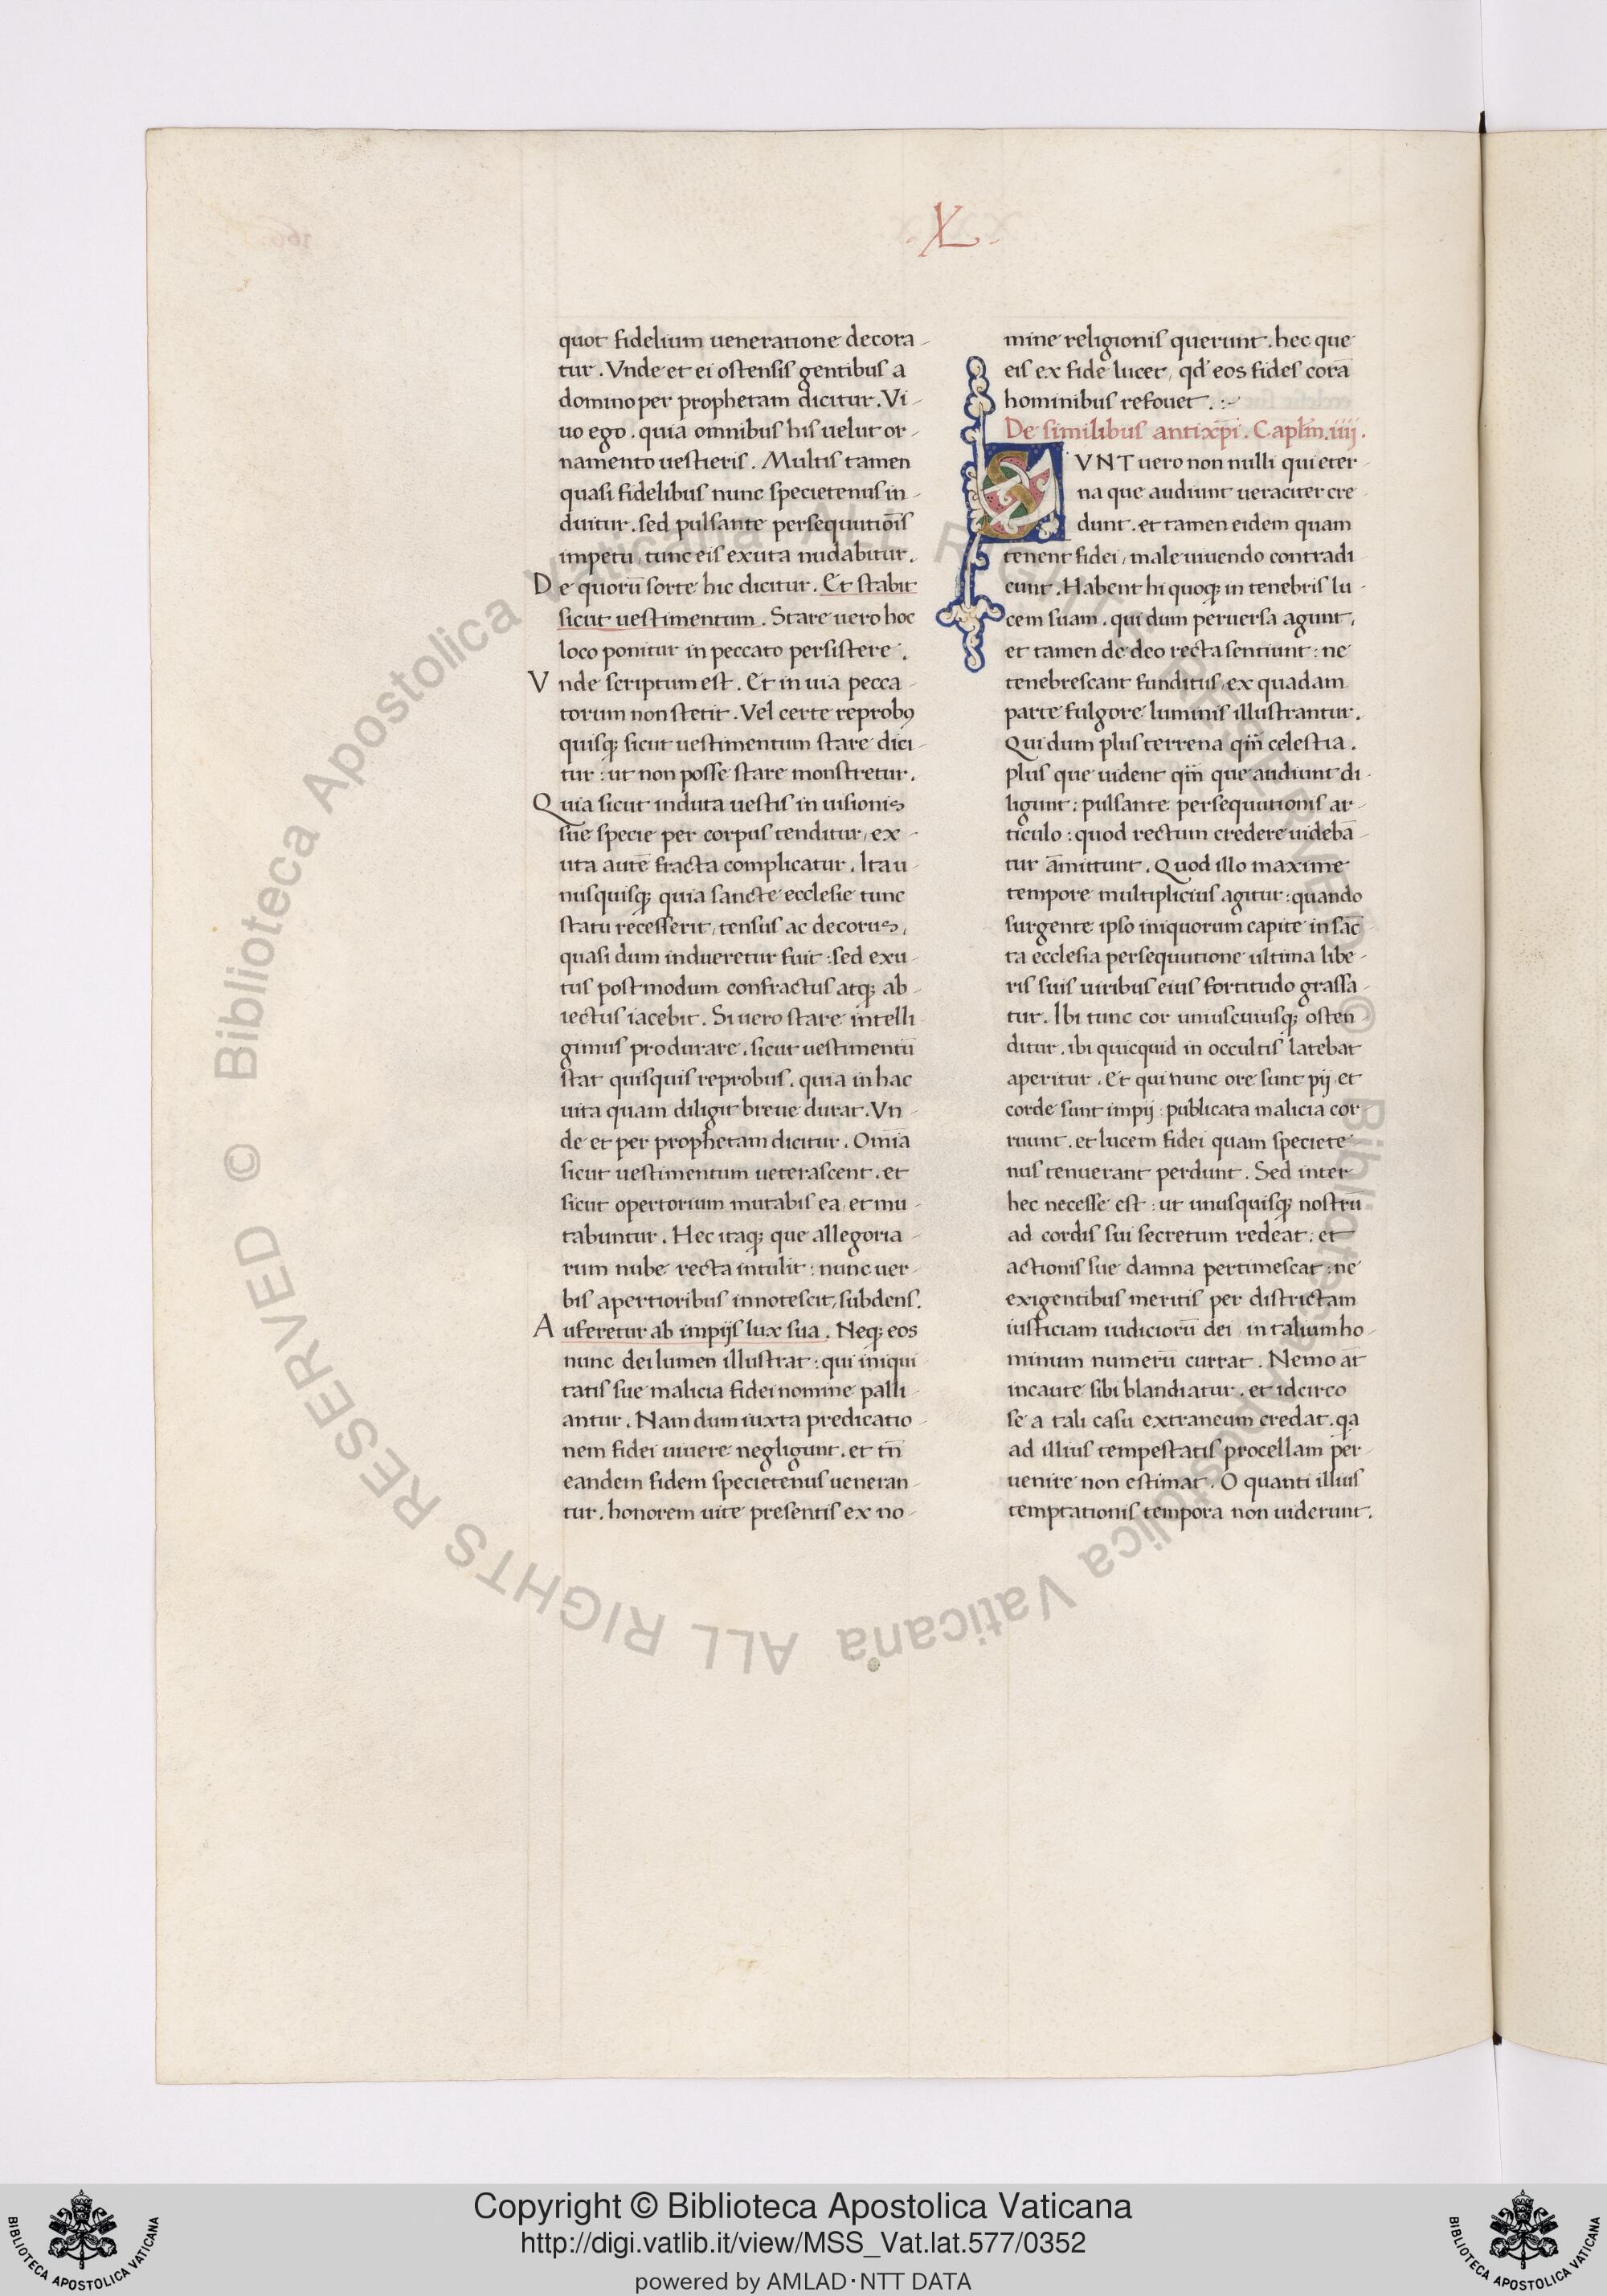 .XL.
quot fidelium ueneratione decora-
tur. Vnde et ei ostensis gentibus a
domino per prophetam dicitur. Vi-
uo ego. quia omnibus his uelut or-
namento uestieris. Multis tamen
quasi fidelibus nunc specietenus in-
duitur. sed pulsante persequutiōis
impetu, tunc eis exuta nudabitur.
De quorū sorte hic dicitur. Et stabit
sicut uestimentum. Stare uero hoc
loco ponitur in peccato persistere.
Vnde scriptum est. Et in uia pecca-
torum non stetit. Vel certe reprobꝰ
quisqꝫ sicut uestimentum stare dici-
tur: ut non posse stare monstretur.
Quia sicut induta uestis in uisionis
sue specie per corpus tenditur, ex-
uta autē fracta complicatur. Ita u-
nusquisqꝫ quia sancte ecclesie tunc
statu recesserit, tensus ac decorus,
quasi dum indueretur fuit: sed exu-
tus postmodum confractus atqꝫ ab-
iectus iacebit. Si uero stare intelli-
gimus prodúrare. sicut uestimentū
stat quisquis reprobus. quia in hac
uita quam diligit breue durat. Vn-
de et per prophetam dicitur. Omīa
sicut uestimentum ueterascent. et
sicut opertorium mutabis ea, et mu-
tabuntur. Hec itaqꝫ que allegoria-
rum nube recta intulit: nunc uer-
bis apertioribus innotescit, subdens.
Auferetur ab impijs lux sua. Neqꝫ eos
nunc dei lumen illustrat: qui iniqui-
tatis sue malicia fidei nomine palli-
antur. Nam dum iuxta predicatio-
nem fidei uiuere negligunt. et tn̄
eandem fidem specietenus ueneran-
tur. honorem uite presentis ex no-
mine religionis querunt. hec que
eis ex fide lucet, qd' eos fides corā
hominibus refouet. :~
De similibus antixp̄i. Caplm̄. iiij.
SVNT uero non nulli qui eter-
na que audiunt ueraciter cre-
dunt. et tamen eidem quam
tenent fidei, male uiuendo contradi-
cunt. Habent hi quoqꝫ in tenebris lu-
cem suam. qui dum peruersa agunt,
et tamen de deo recta sentiunt: ne
tenebrescant funditus, ex quadam
parte fulgore luminis illustrantur.
Qui dum plus terrena qm̄ celestia.
plus que uident qm̄ que audiunt di-
ligunt: pulsante persequutionis ar-
ticulo: quod rectum credere uidebā-
tur amittunt. Quod illo maxime
tempore multiplicius agitur: quando
surgente ipso iniquorum capite in sāc-
ta ecclesia persequutione ultima libe-
ris suis uiribus eius fortitudo grassa-
tur. Ibi tunc cor uniuscuiusqꝫ osten-
ditur. ibi quicquid in occultis latebat
aperitur. Et qui nunc ore sunt pij, et
corde sunt impij: publicata malicia cor-
ruunt. et lucem fidei quam speciete-
nus tenuerant perdunt. Sed inter
hec necesse est: ut unusquisqꝫ nostrū
ad cordis sui secretum redeat. et
actionis sue damna pertimescat: ne
exigentibus meritis per districtam
iusticiam iudiciorū dei, in talium ho-
minum numerū currat. Nemo aūt
incaute sibi blandiatur. et idcirco
se a tali casu extraneum credat. qa
ad illius tempestatis procellam per-
uenire non estimat. O quanti illius
temptationis tempora non uiderunt.
© Biblioteca Apostolica Vaticana ALL RIGHTS RESERVED
© Biblioteca Apostolica Vaticana ALL RIGHTS RESERVED
Copyright © Biblioteca Apostolica Vaticana
http://digi.vatlib.it/view/MSS_Vat.lat.577/0352
powered by AMLAD·NTT DATA
BIBLIOTECA APOSTOLICA VATICANA
BIBLIOTECA APOSTOLICA VATICANA